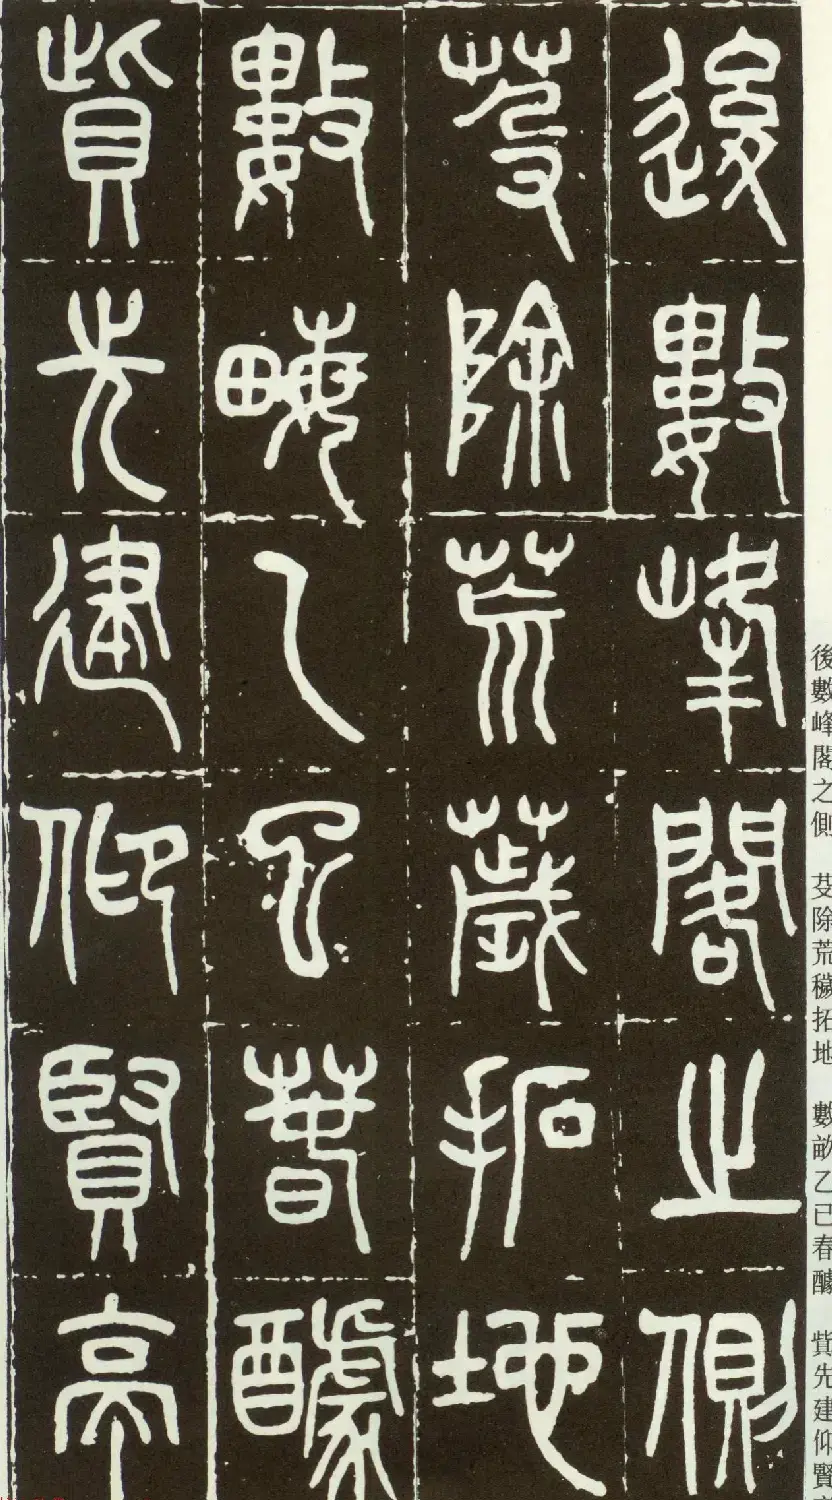 後數峰閣之側
芟除荒薉拓地
數畮乙巳春醵
貲先建仰賢亭
後數峰閣之側　芟除荒穢拓地　數畝乙巳春醵　貲先建仰賢